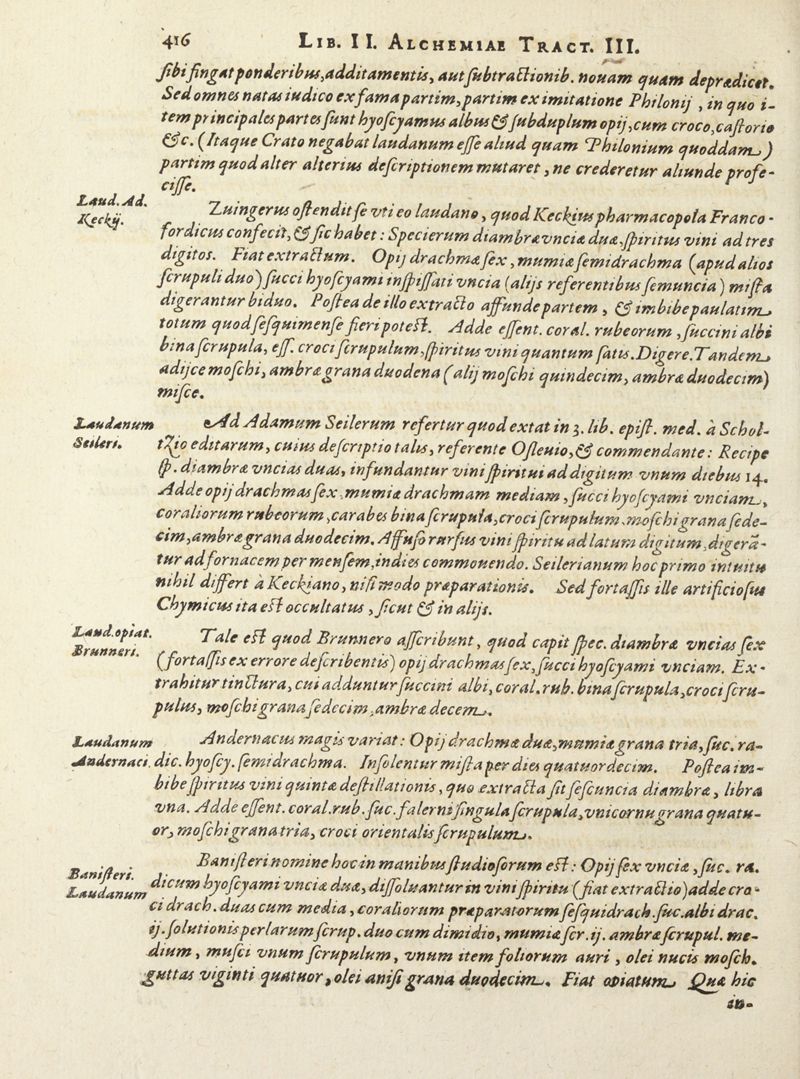 416 LIB. II. ALCHEMIAE TRACT. III.
sibi fingat ponderibus, additamentis, aut subtractionib. nouam quam deprædicet.
Sed omnes natas iudico ex fama partim, partim ex imitatione Philonij, in quo i-
tem principales partes sunt hyoscyamus albus & subduplum opij, cum croco, castorio
&c. (Itaque Crato negabat laudanum esse aliud quam Philonium quoddam)
partim quod alter alterius descriptionem mutaret, ne crederetur aliunde profe-
cisse.
Laud. Ad.
Keckij.
Zuingerus ostendit se vti eo laudano, quod Keckius pharmacopola Franco-
fordicus confecit, & sic habet: Specierum diambræ vncia duæ, spiritus vini ad tres
digitos. Fiat extractum. Opij drachmæ sex, mumiæ semidrachma (apud alios
scrupuli duo) succi hyoscyami inspissati vncia (alijs referentibus semuncia) mista
digerantur biduo. Postea de illo extracto affunde partem, & imbibe paulatim
totum quod sesquimense fieri potest. Adde essent. coral. rubeorum, succini albi
bina scrupula, ess. croci scrupulum, spiritus vini quantum satis. Digere. Tandem
adijce moschi, ambræ grana duodena (alij moschi quindecim, ambræ duodecim)
misce.
Laudanum
Seileri.
Ad Adamum Seilerum refertur quod extat in 3. lib. epist. med. à Schol-
tzio editarum, cuius descriptio talis, referente Osleuio, & commendante: Recipe
sp. diambræ vncias duas, infundantur vini spiritui ad digitum vnum diebus 14.
Adde opij drachmas sex, mumiæ drachmam mediam, succi hyoscyami vnciam,
coraliorum rubeorum, carabes bina scrupula, croci scrupulum, moschi grana sede-
cim, ambræ grana duodecim. Affuso rursus vini spiritu ad latum digitum, digerā-
tur ad fornacem per mensem, indies commouendo. Seilerianum hoc primo intuitu
nihil differt à Keckiano, nisi modo præparationis. Sed fortassis ille artificiosus
Chymicus ita est occultatus, sicut & in alijs.
Laud. opiat.
Brunneri.
Tale est quod Brunnero asscribunt, quod capit spec. diambræ vncias sex
(fortassis ex errore describentis) opij drachmas sex, succi hyoscyami vnciam. Ex-
trahitur tinctura, cui adduntur succini albi, coral. rub. bina scrupula, croci scru-
pulus, moschi grana sedecim, ambræ decem.
Laudanum
Andernaci.
Andernacus magis variat: Opij drachmæ duæ, mumiæ grana tria, suc. ra-
dic. hyoscy. semidrachma. Insolentur mista per dies quatuordecim. Postea im-
bibe spiritus vini quintæ destillationis, quo extracta sit sescuncia diambræ, libra
vna. Adde essent. coral. rub. suc. falerni singula scrupula, vnicornu grana quatu-
or, moschi grana tria, croci orientalis scrupulum.
Banisteri.
Laudanum
Banisteri nomine hoc in manibus studiosorum est: Opij sex vnciæ, suc. ra.
dicum hyoscyami vnciæ duæ, dissoluantur in vini spiritu (fiat extractio) adde cro-
ci drach. duas cum media, coraliorum præparatorum sesquidrach. suc. albi drac.
ij. solutionis perlarum scrup. duo cum dimidio, mumiæ scr. ij. ambræ scrupul. me-
dium, musci vnum scrupulum, vnum item foliorum auri, olei nucis mosch.
guttas viginti quatuor, olei anisi grana duodecim. Fiat opiatum. Quæ hic
in-